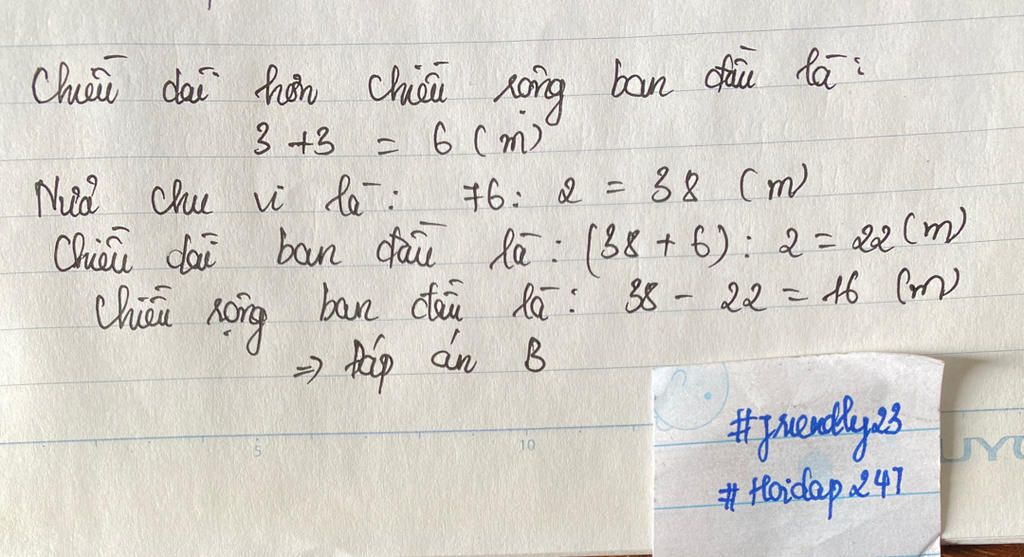 Chiều dài hơn chiều rộng ban đầu là:
3 + 3 = 6 (m)
Nửa chu vi là: 76 : 2 = 38 (m)
Chiều dài ban đầu là: (38 + 6) : 2 = 22 (m)
Chiều rộng ban đầu là: 38 - 22 = 16 (m)
=> Đáp án B
#friendly23
#Hoidap247
5 10